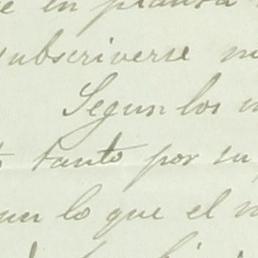 en planta
subscriverse
Segun los
tanto por su
lo que el